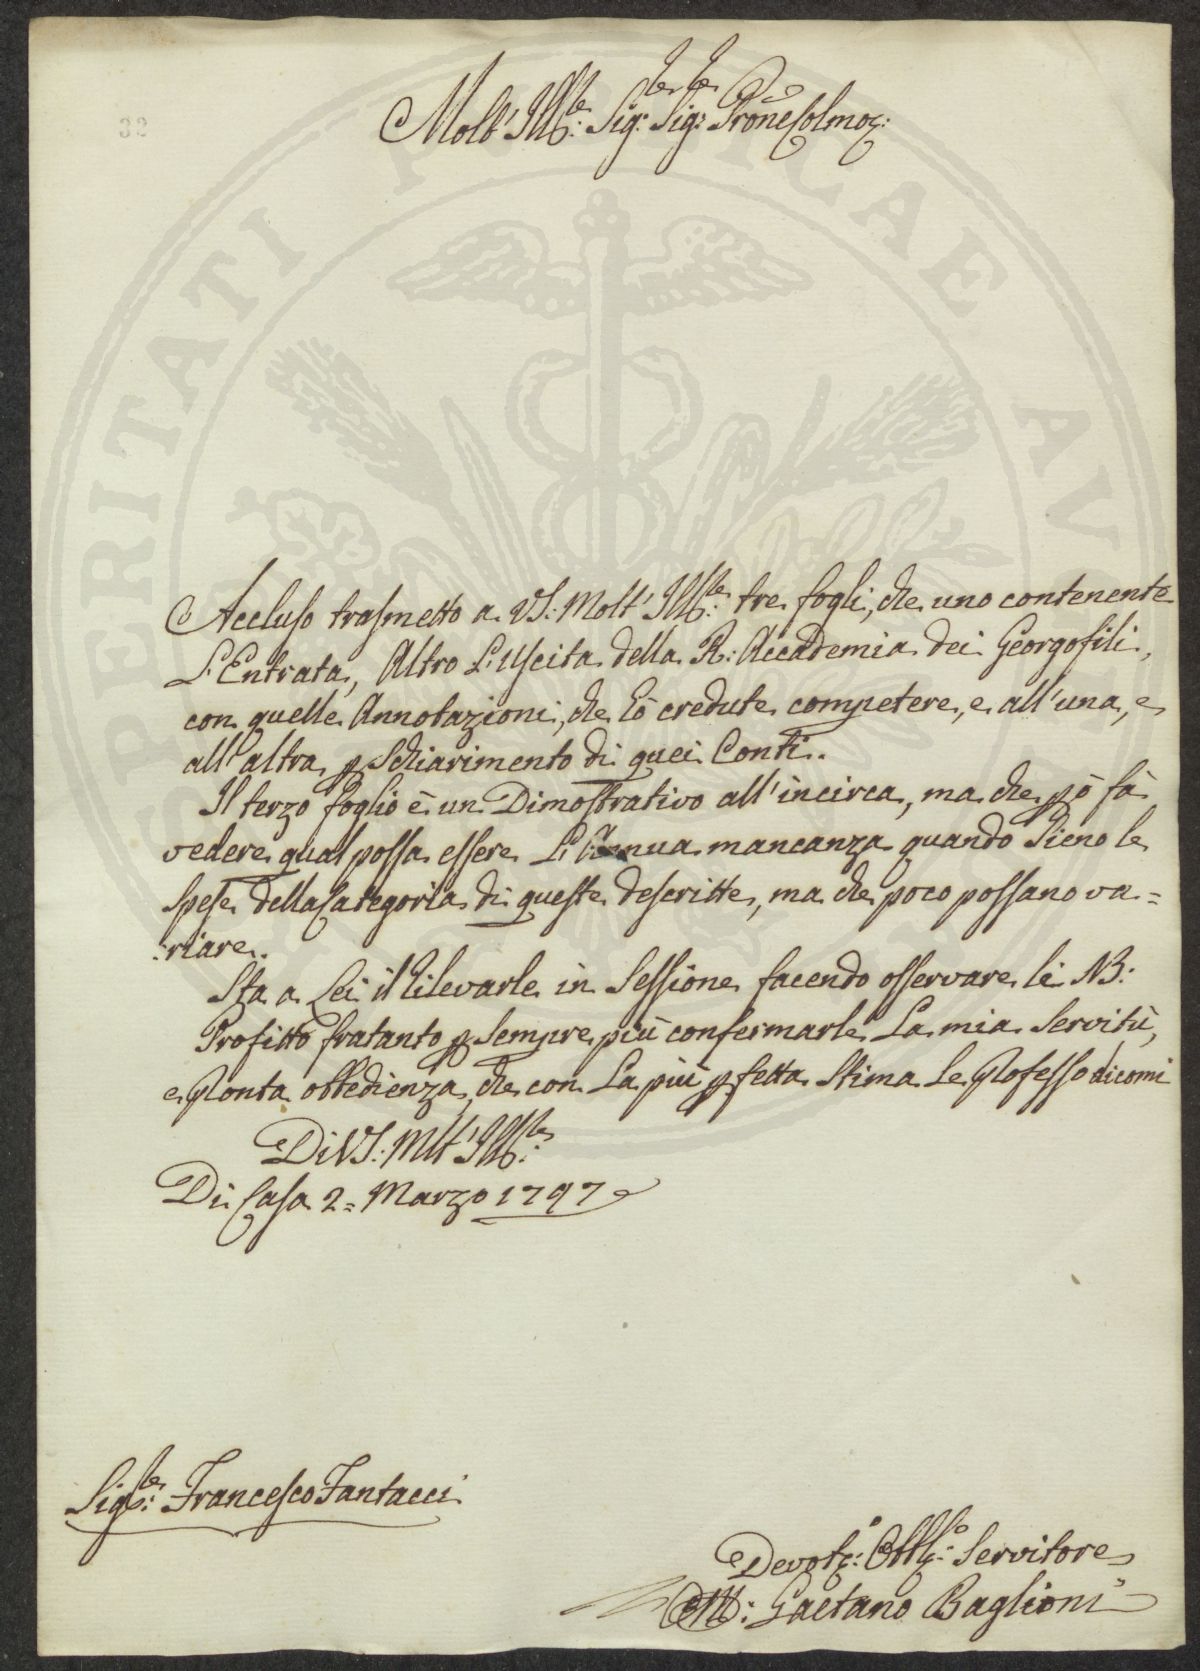 32
Molt' Ill:re Sig:re Sig:re Prone Colmo:
Accluso trasmetto a VS: Molt' Ill:re tre fogli, che uno contenente
L'Entrata, Altro L'Uscita della R: Accademia dei Georgofili,
con quelle Annotazioni, che hò credute competere, e all'una, e
all'altra p schiarimento di quei Conti.
Il terzo foglio è un Dimostrativo all'incirca, ma che pò fà
vedere qual possa essere L'Annua mancanza quando sieno le
spese della Categoria di queste descritte, ma che poco possano va=
:riare.
Sta a Lei il rilevarle in Sessione facendo osservare li NB:
Profitto fratanto p sempre più confermarle La mia Servitù,
e pronta obbedienza, che con La più pfetta Stima Le professo dicomi
Di VS: Mlt' Ill:re
Di Casa 2= Marzo 1797
Sig:re Francesco Fantacci
Devot:o Obbl:o Servitore
Gaetano Baglioni
PERITATI PUBLICAE